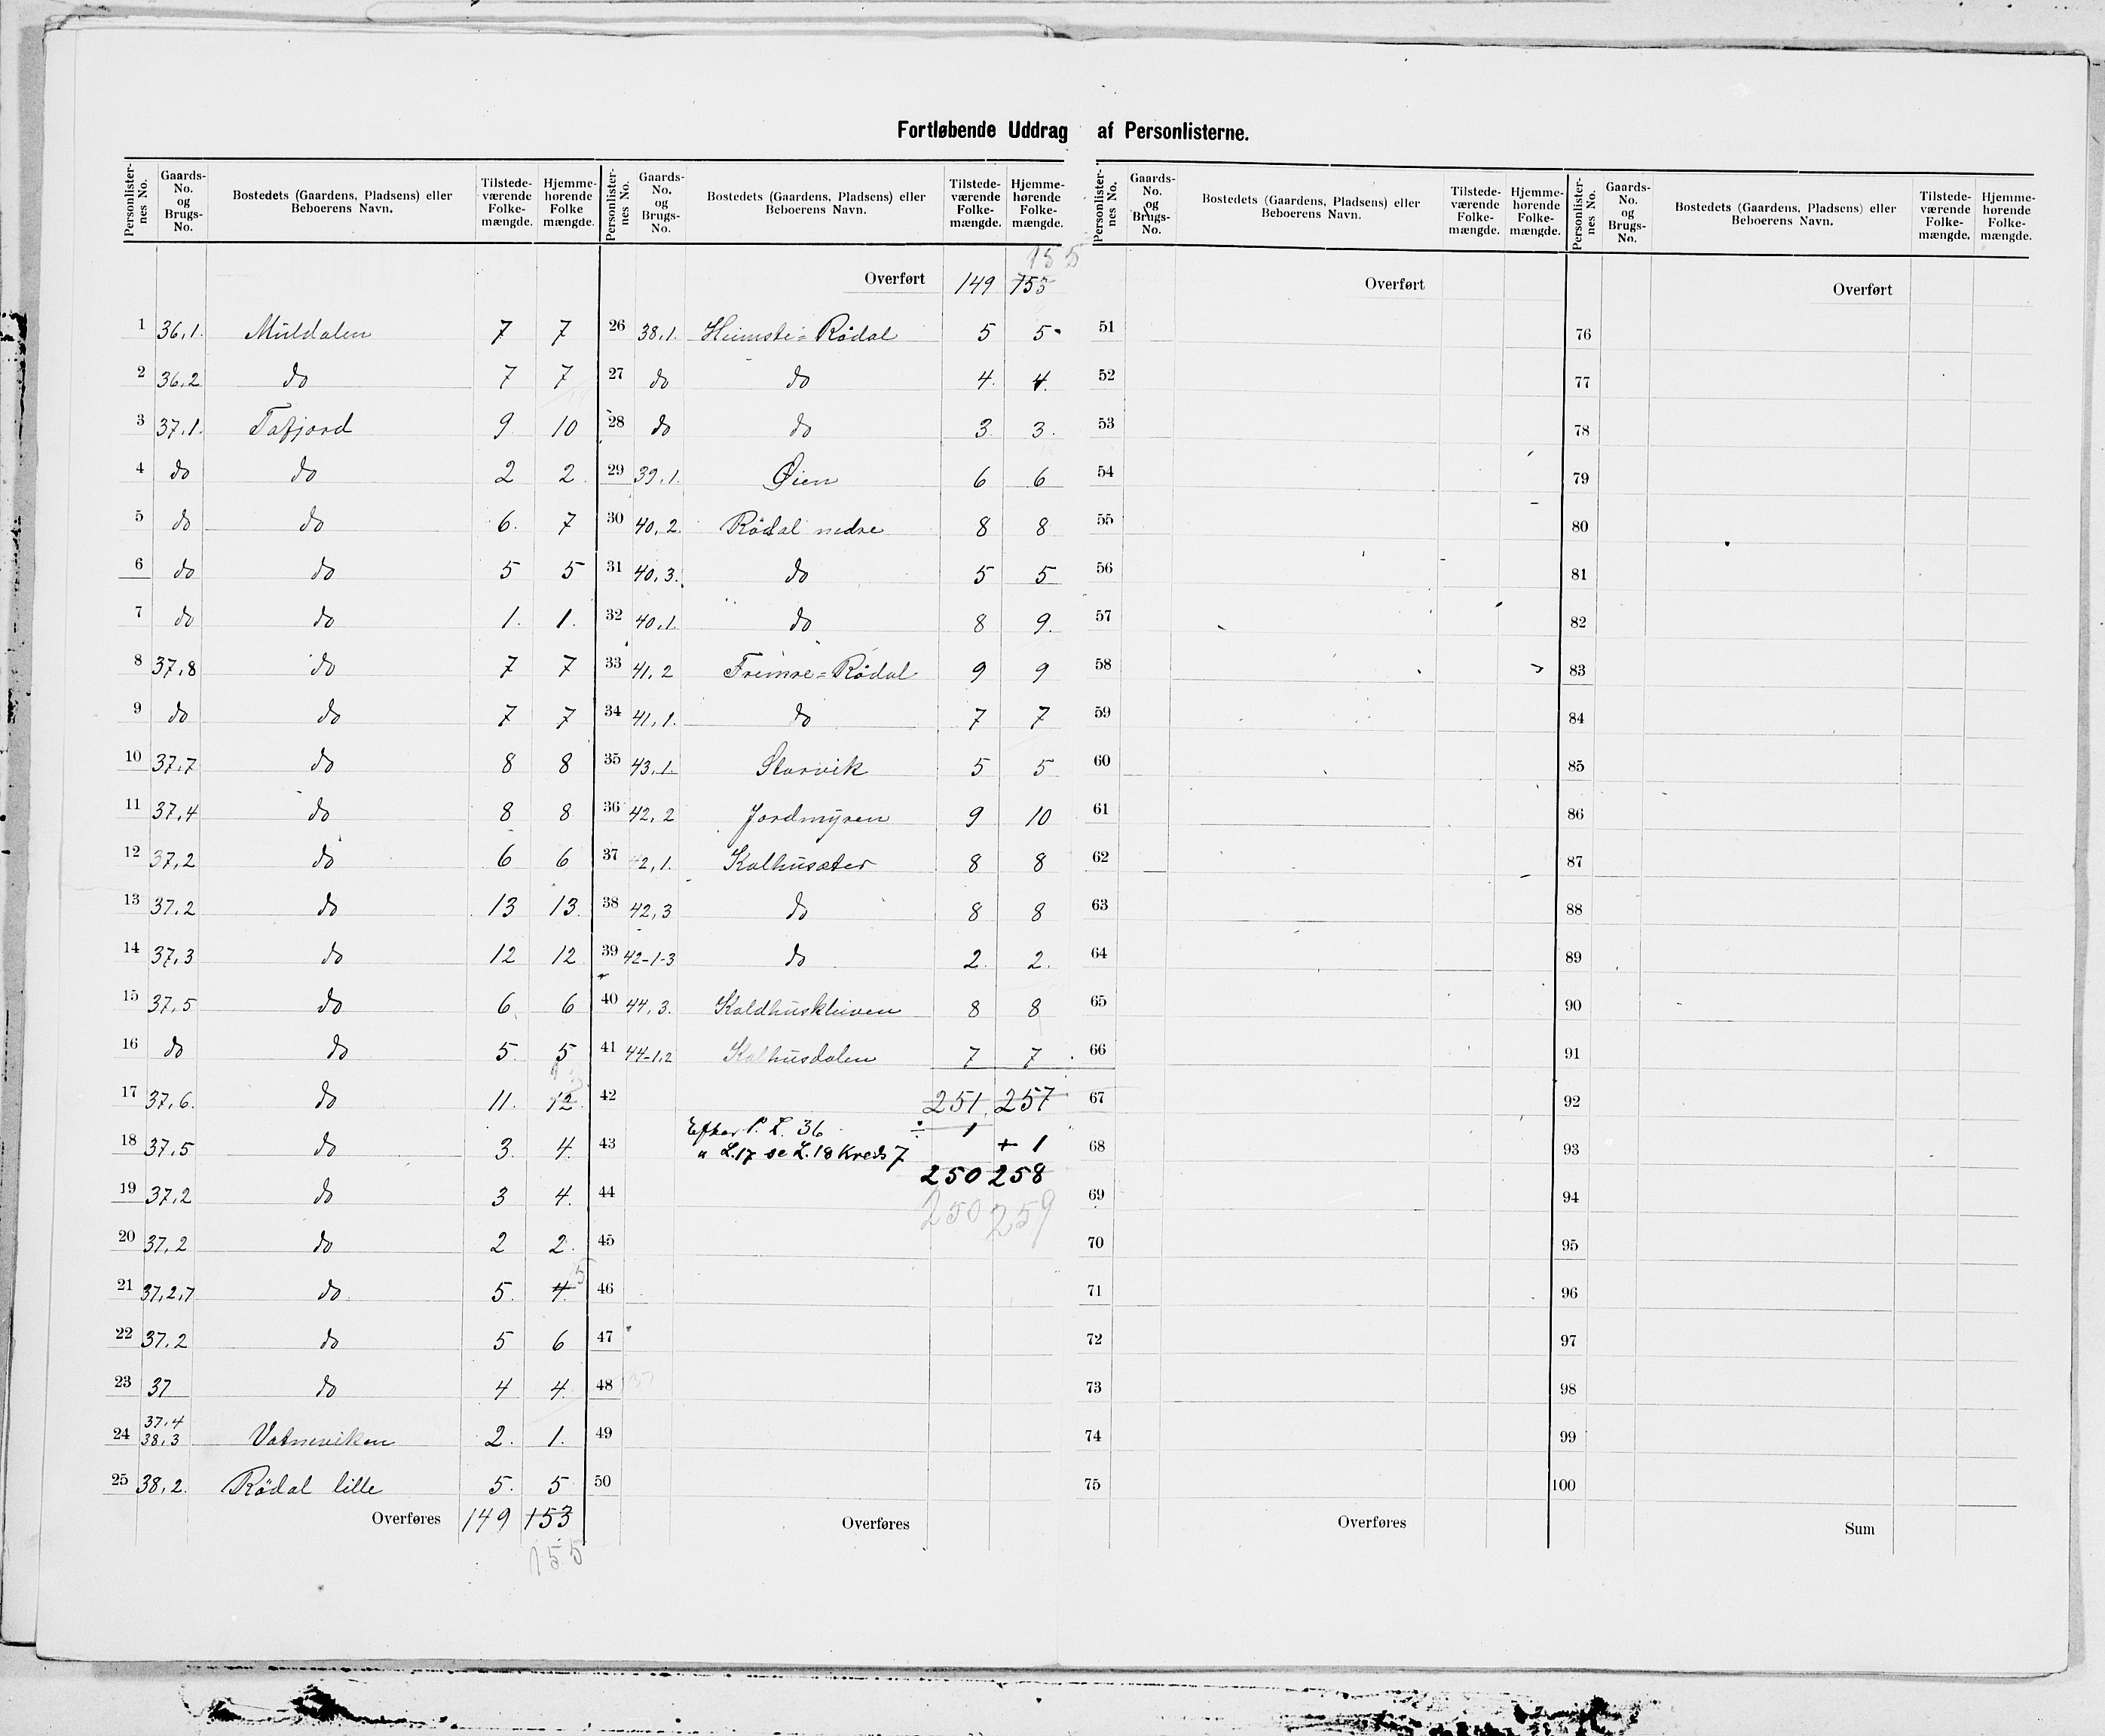 Fortløbende Uddrag af Personlisterne.
Personlisternes No. Gaards-No. og Brugs-No. Bostedets (Gaardens, Pladsens) eller Beboerens Navn. Tilstedeværende Folkemængde. Hjemmehørende Folkemængde.
1 36,1. Muldalen 7 7
2 36,2 do 7 7
3 37,1. Tafjord 9 10
4 do do 2 2
5 do do 6. 7
6 do do 5 5
7 do do 1. 1.
8 37,8 do 7 7
9 do do 7 7
10 37,7 do 8 8
11 37,4 do 8 8
12 37,2 do 6 6
13 37,2 do 13 13
14 37,3 do 12 12
15 37,5 do 6 6
16 do do 5 5
17 37,6. do 11. 12.
18 37,5 do 3. 4.
19 37,2 do 3 4.
20 37,2 do 2 2.
21 37,2,7 do 5. 4 5
22 37,2 do 5 6
23 37 do 4 4.
24 37,4 38,3 Vatneviken 2. 1.
25 38,2. Rödal lille 5. 5
Overføres 149 153
155
Personlisternes No. Gaards-No. og Brugs-No. Bostedets (Gaardens, Pladsens) eller Beboerens Navn. Tilstedeværende Folkemængde. Hjemmehørende Folkemængde.
155
Overført 149 155
26 38,1. Heimste=Rödal 5 5
27 do do 4. 4.
28 do do 3. 3.
29 39,1. Øien 6 6
30 40,2. Rödal nedre 8 8
31 40,3. do 5 5
32 40,1. do 8 9.
33 41,2 Fremre=Rödal 9 9
34 41,1. do 7 7
35 43,1. Storvik 5 5
36 42,2 Jordmyren 9 10
37 42,1. Kalhusæter 8 8
38 42,3 do 8 8
39 42-1-3 do 2. 2.
40 44,3. Koldhuskleiven 8 8
41 44-1,2 Kalhusdalen 7 7
42 251 257
Efter P. L. 36 ÷ 1
43 " L.17 se L.18 Kreds 7 + 1
250 258
44
250 259
45
46
47
48 37
49
50
Overføres
Personlisternes No. Gaards-No. og Brugs-No. Bostedets (Gaardens, Pladsens) eller Beboerens Navn. Tilstedeværende Folkemængde. Hjemmehørende Folkemængde.
Overført
51
52
53
54
55
56
57
58
59
60
61
62
63
64
65
66
67
68
69
70
71
72
73
74
75
Overføres
Personlisternes No. Gaards-No. og Brugs-No. Bostedets (Gaardens, Pladsens) eller Beboerens Navn. Tilstedeværende Folkemængde. Hjemmehørende Folkemængde.
Overført
76
77
78
79
80
81
82
83
84
85
86
87
88
89
90
91
92
93
94
95
96
97
98
99
100
Sum